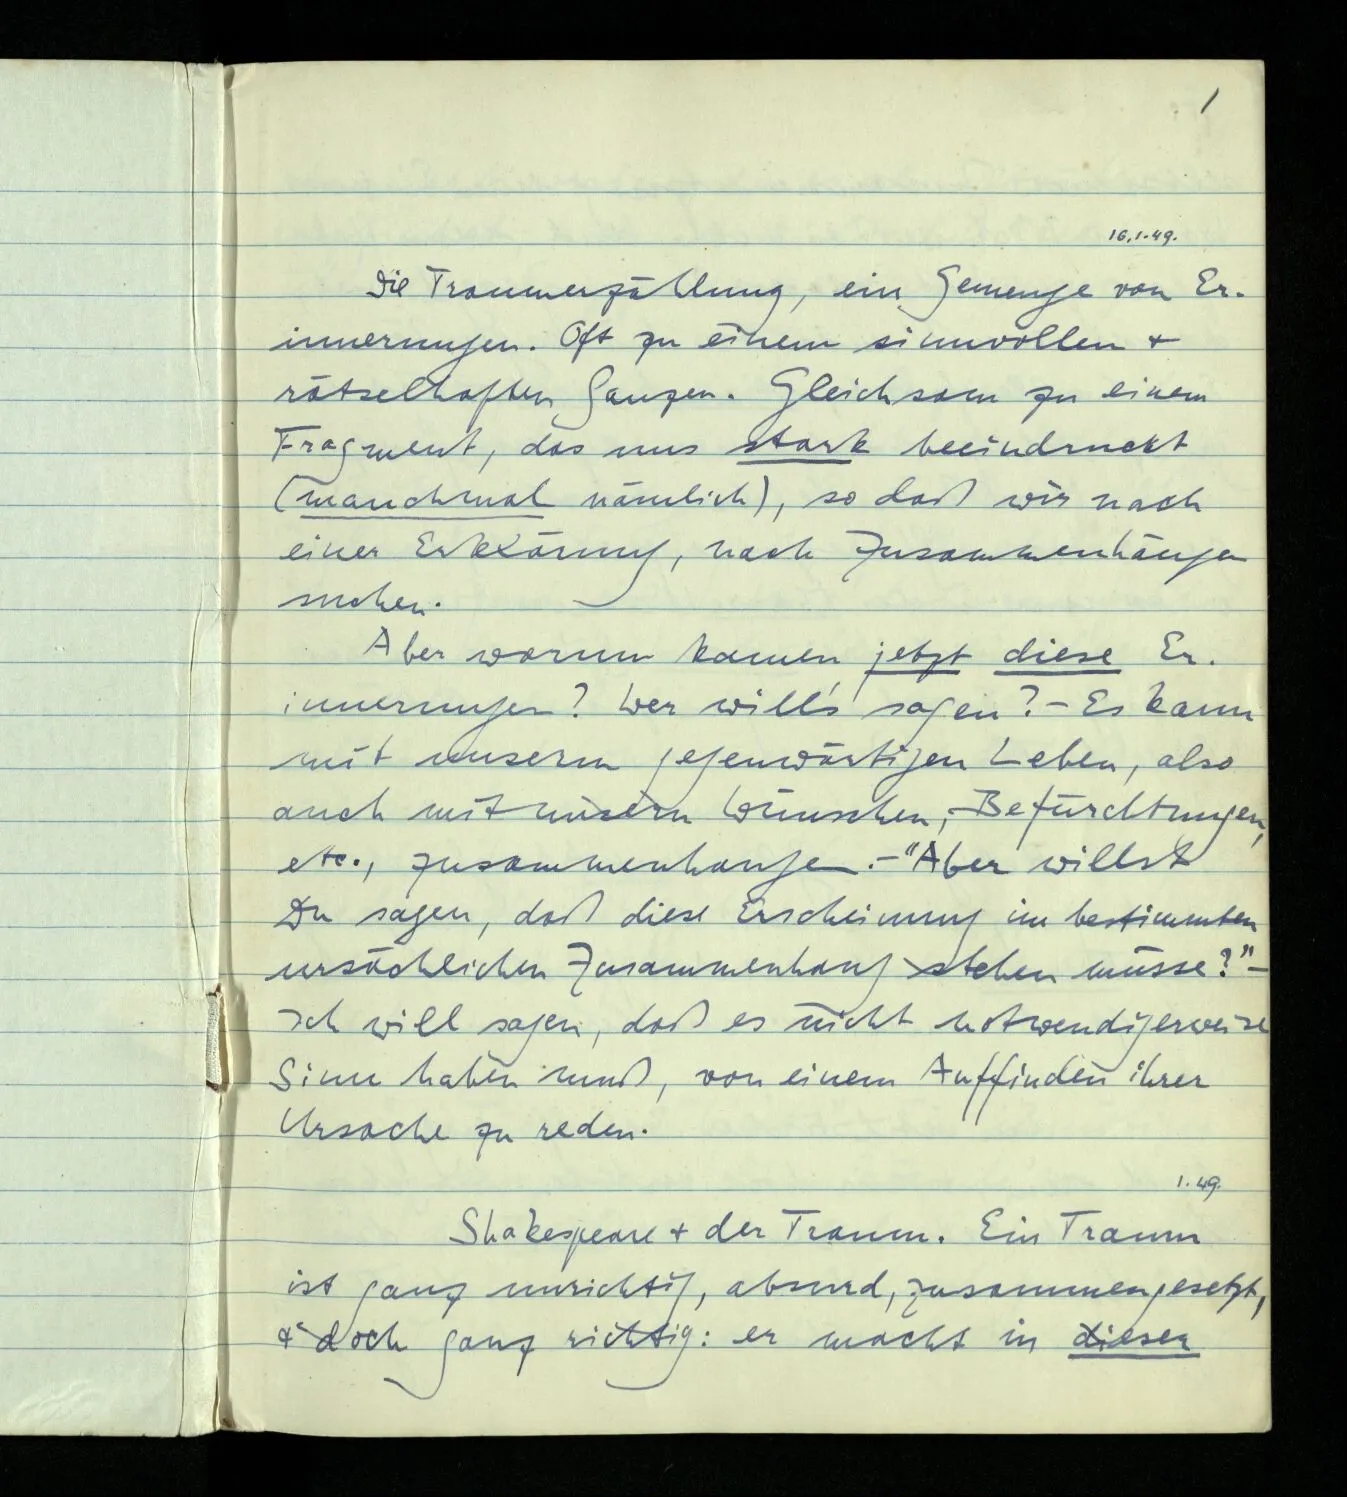 1
16.1.49.
Die Traumerzählung, ein Gemenge von Er-
innerungen. Oft zu einem sinnvollen +
rätselhaften Ganzen. Gleichsam zu einem
Fragment, das uns stark beeindruckt
(manchmal nämlich), so daß wir nach
einer Erklärung, nach Zusammenhängen
suchen.
Aber warum kamen jetzt diese Er-
innerungen? Wer will's sagen? – Es kann
mit unserm gegenwärtigen Leben, also
auch mit unsern Wünschen, Befürchtungen,
etc., zusammenhangen. – "Aber willst
Du sagen, daß diese Erscheinung im bestimmten
ursächlichen Zusammenhang stehen müsse?" –
Ich will sagen, daß es nicht notwendigerweise
Sinn haben muß, von einem Auffinden ihrer
Ursache zu reden.
1.49.
Shakespeare + der Traum. Ein Traum
ist ganz unrichtig, absurd, zusammengesetzt,
+ doch ganz richtig: er macht in dieser